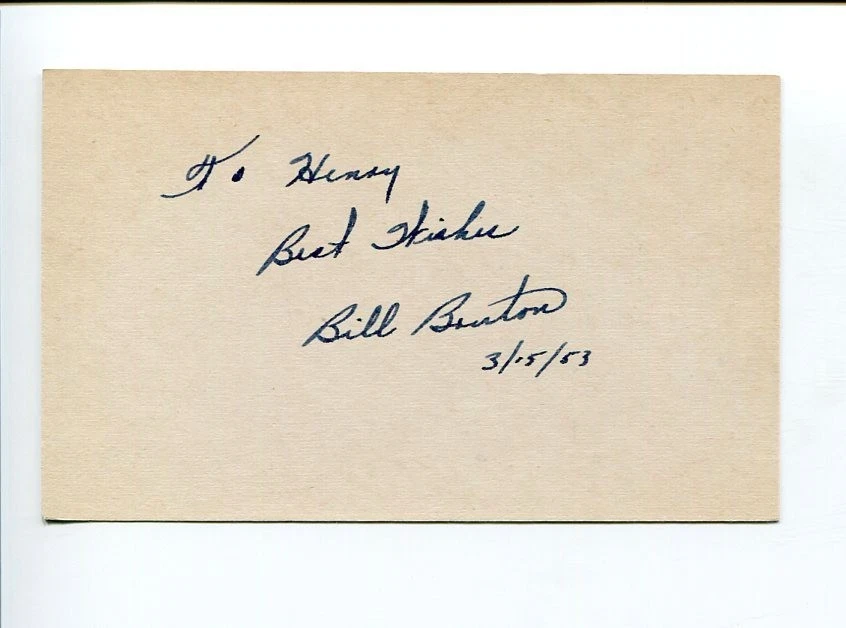 To Henry
Best Wishes
Bill Bruton
3/15/53